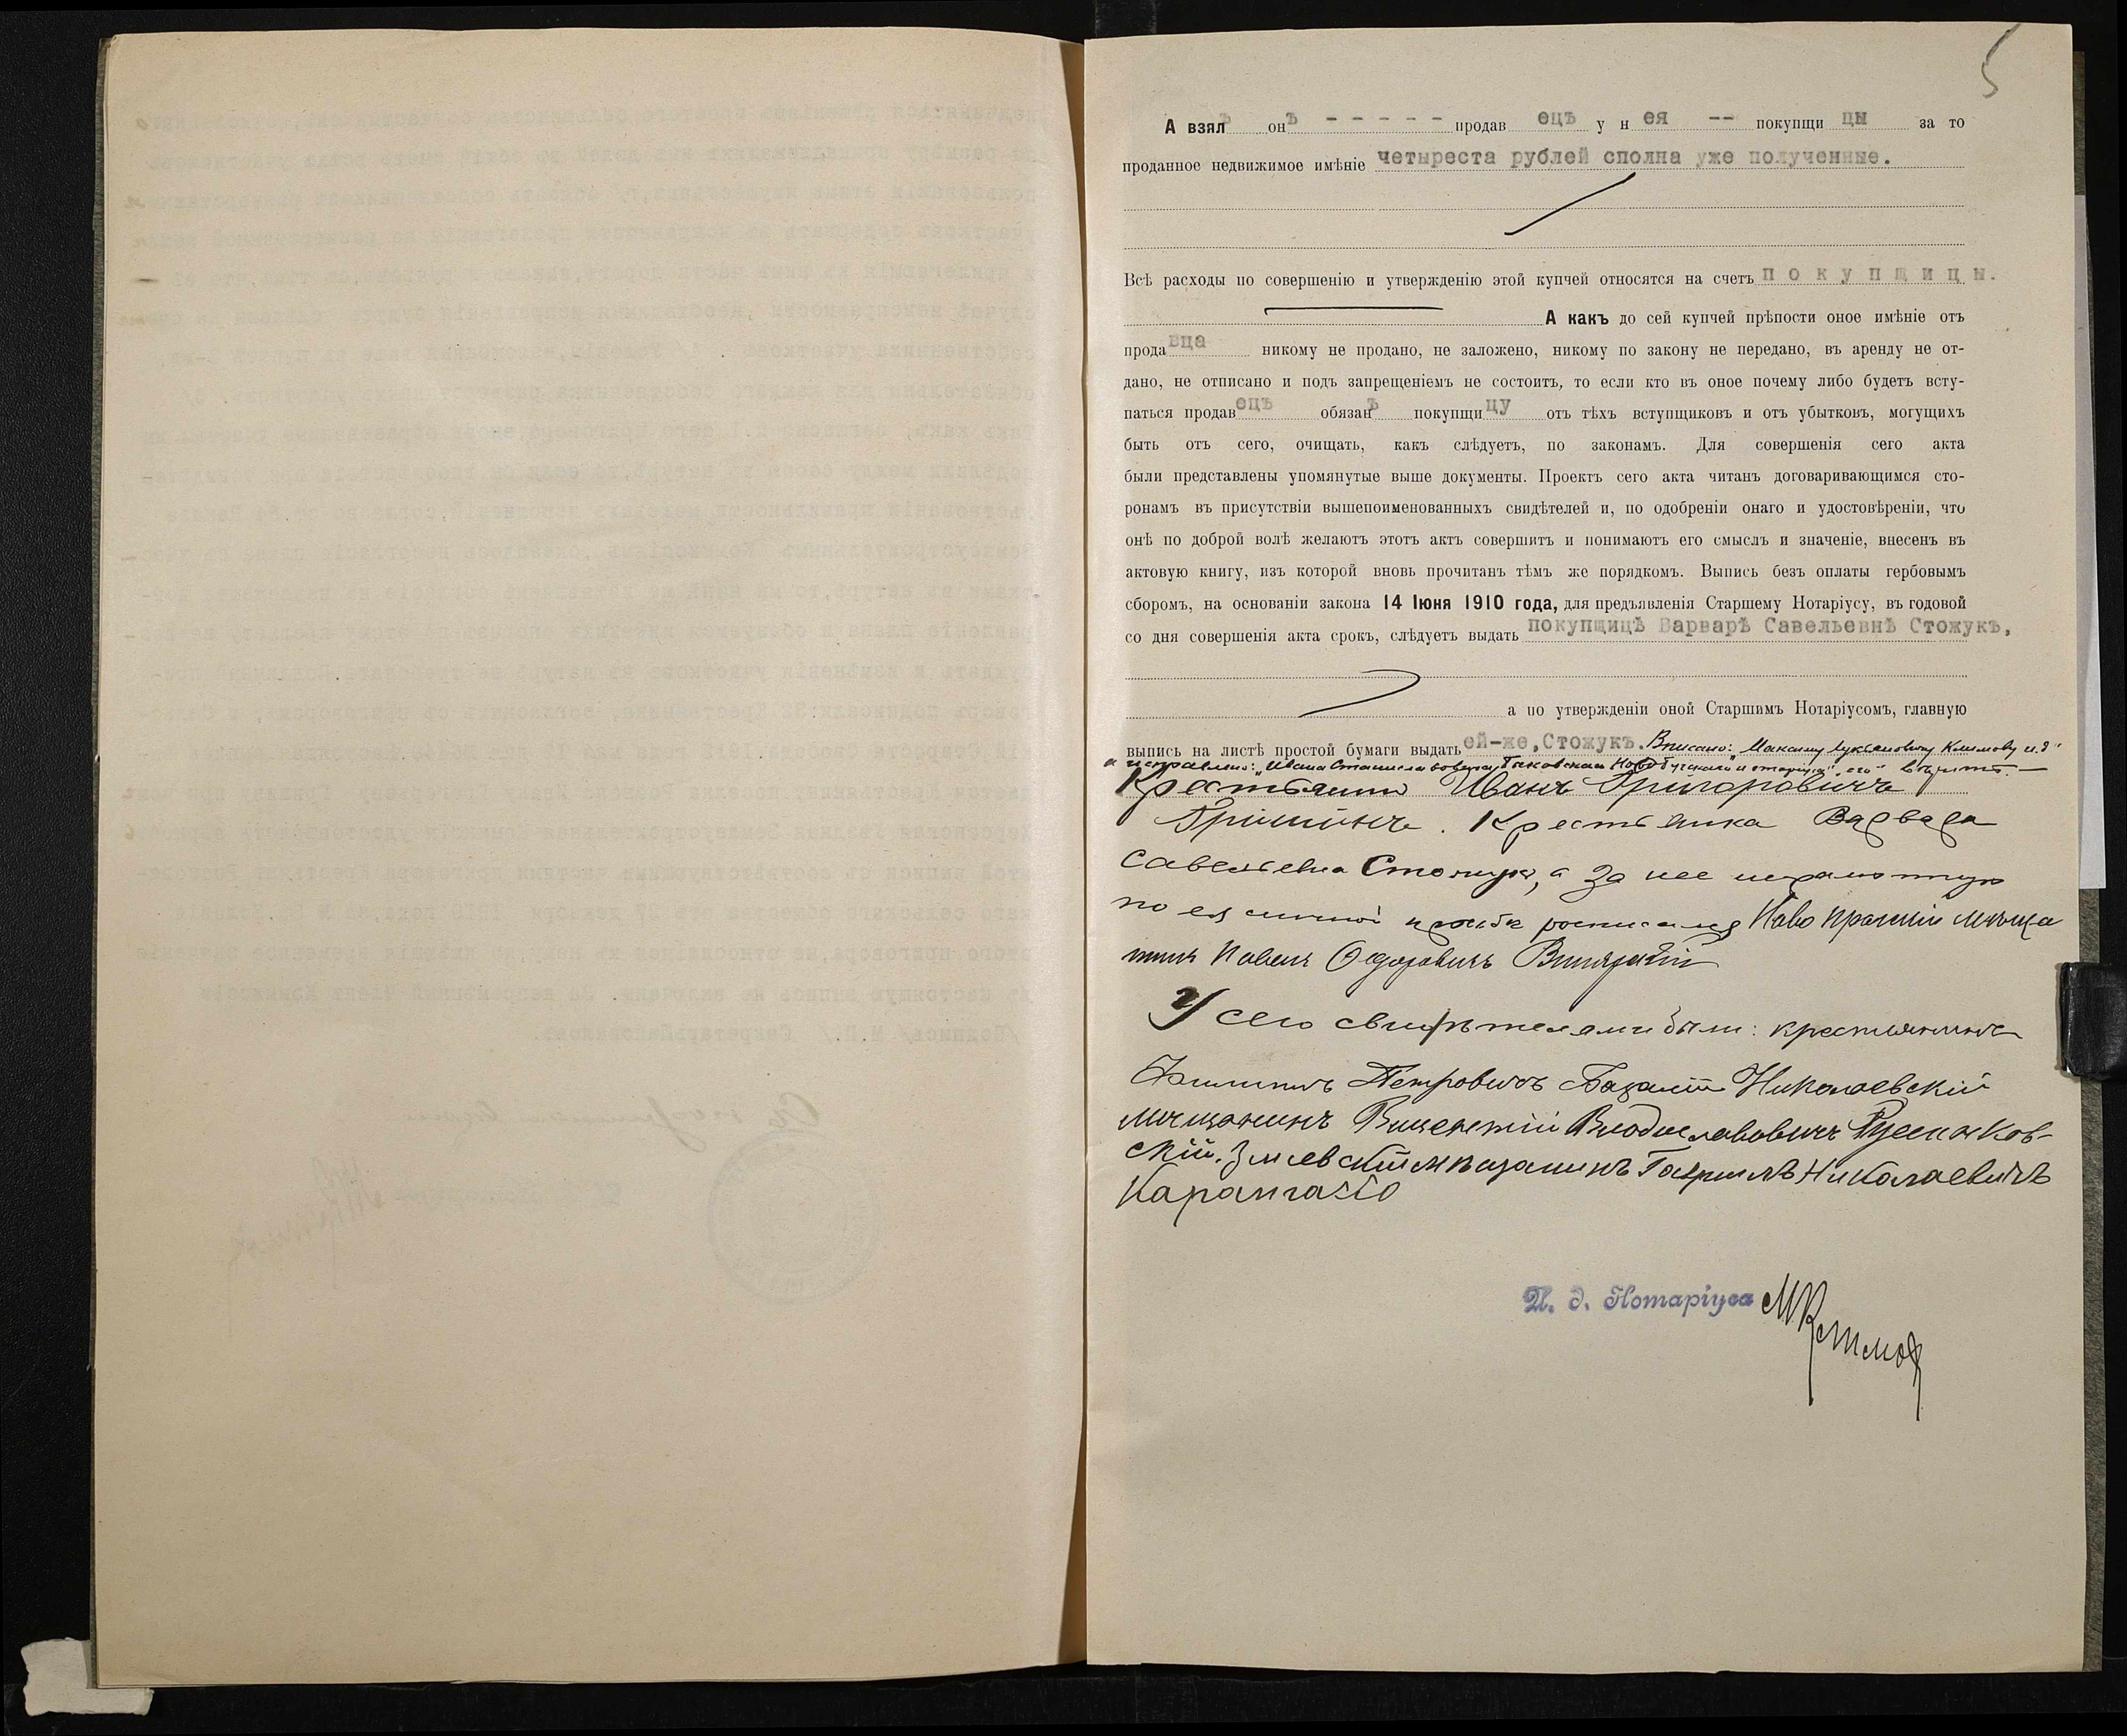 5
А взялъ онъ - - - - - продавецъ у нея -- покупщицы за то
проданное недвижимое имѣніе четыреста рублей сполна уже полученные.
Всѣ расходы по совершенію и утвержденію этой купчей относятся на счетъ покупщицы.
А какъ до сей купчей прѣпости оное имѣніе отъ
продавца никому не продано, не заложено, никому по закону не передано, въ аренду не от-
дано, не отписано и подъ запрещеніемъ не состоитъ, то если кто въ оное почему либо будетъ всту-
паться продавецъ обязанъ покупщицу отъ тѣхъ вступщиковъ и отъ убытковъ, могущихъ
быть отъ сего, очищать, какъ слѣдуетъ, по законамъ. Для совершенія сего акта
были представлены упомянутые выше документы. Проектъ сего акта читанъ договаривающимся сто-
ронамъ въ присутствіи вышепоименованныхъ свидѣтелей и, по одобреніи онаго и удостовѣреніи, что
онѣ по доброй волѣ желаютъ этотъ актъ совершить и понимаютъ его смыслъ и значеніе, внесенъ въ
актовую книгу, изъ которой вновь прочитанъ тѣмъ же порядкомъ. Выпись безъ оплаты гербовымъ
сборомъ, на основаніи закона 14 Іюня 1910 года, для предъявленія Старшему Нотаріусу, въ годовой
со дня совершенія акта срокъ, слѣдуетъ выдать покупщицѣ Варварѣ Савельевнѣ Стожукъ,
а по утвержденіи оной Старшимъ Нотаріусомъ, главную
выпись на листѣ простой бумаги выдать ей-же, Стожукъ. Вписано: "Максиму Лукьяновичу Климову и.д"
и исправлено: "Ивана Станиславовича,
Крестьянинъ Иванъ Григоровичъ
Гришинъ. Крестьянка Варвара
Савельевна Стожукъ, а за нее неграмотную
по ея личной просьбѣ росписался Ново Пражскій мѣща
нинъ Павелъ Федоровичъ
У сего свидѣтелями были: крестьянинъ
Филиппъ Петровичъ Николаевскій
мѣщанинъ Викентій Владиславовичъ
скій. Зміевскій мѣщанинъ Гавріилъ Николаевичъ
И. д. Нотаріуса МКлимов